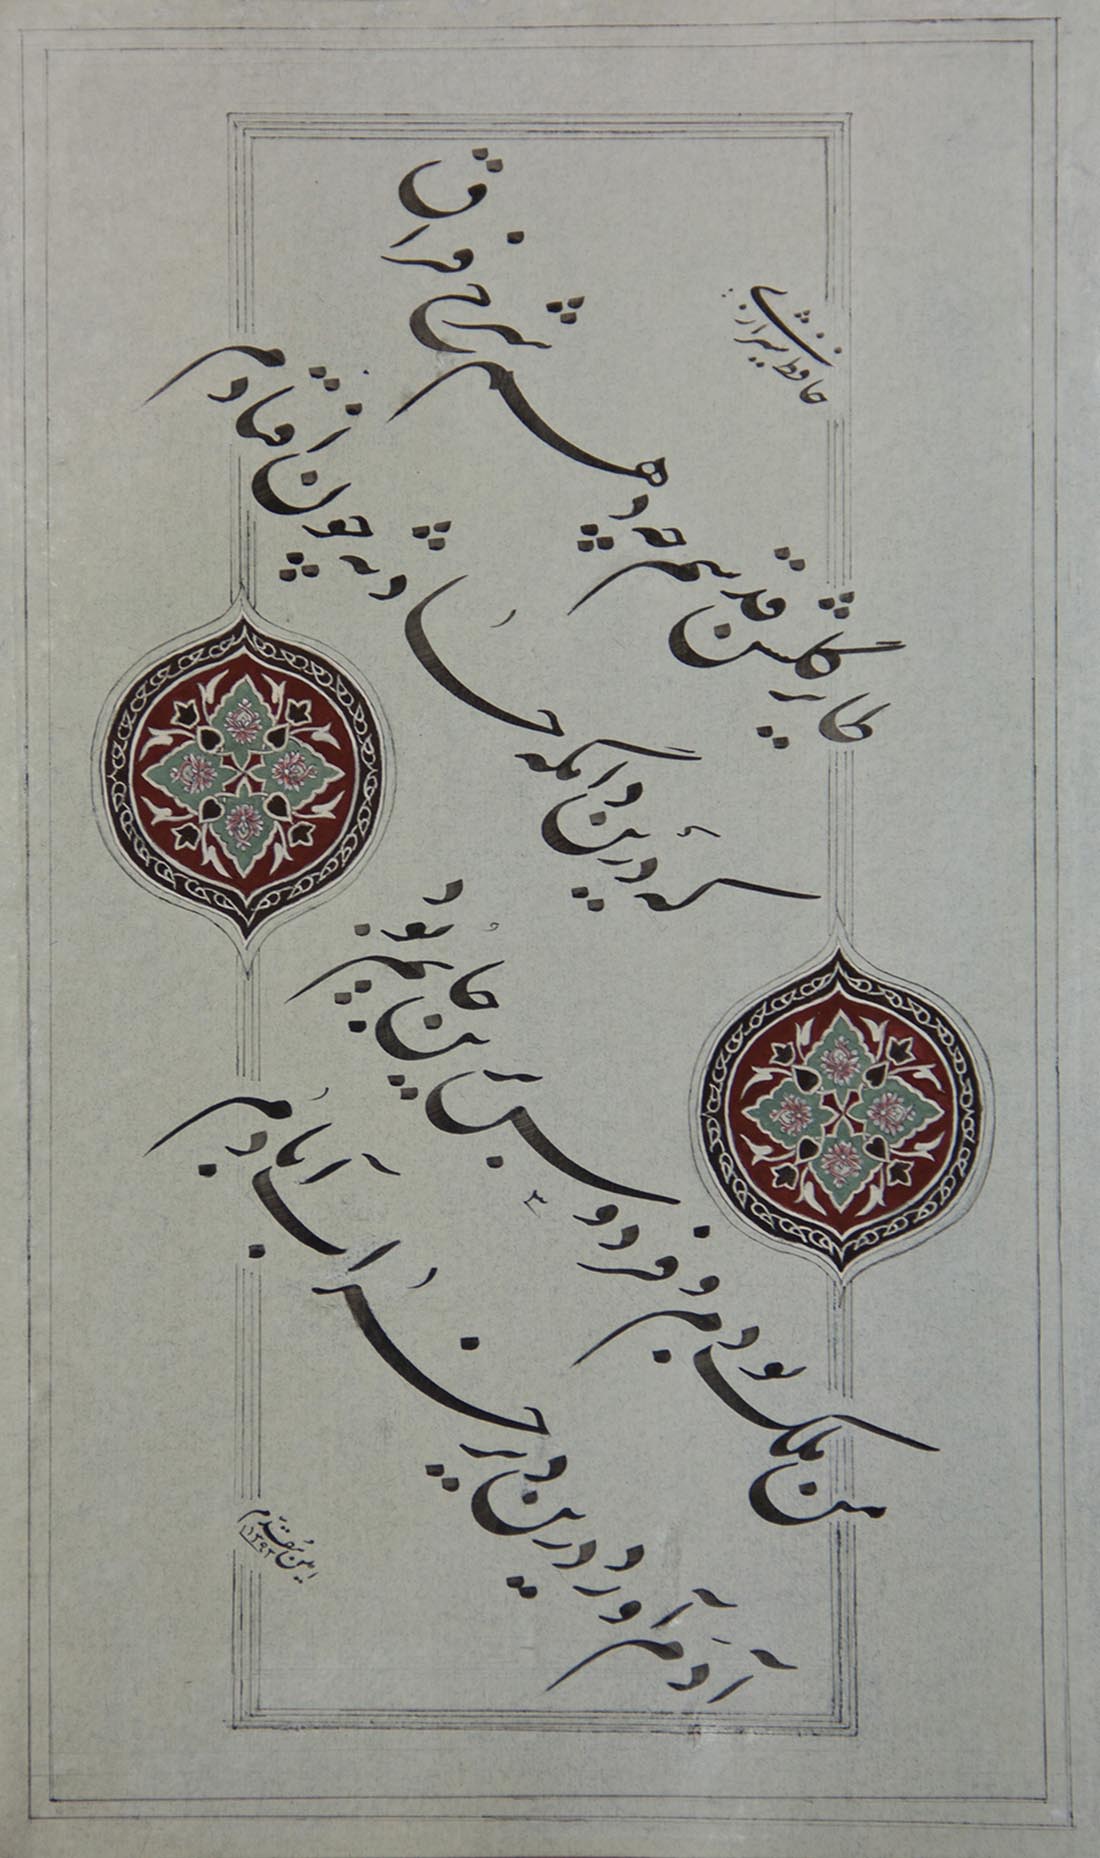 حافظ شیرازی
طایر گلشن قدسم چه دهم شرح فراق
که درین دامگه حادثه چون افتادم
من ملک بودم و فردوس برین جایم بود
آدم آورد درین دیر خراب آبادم
امین مقدم
۱۳۹۳